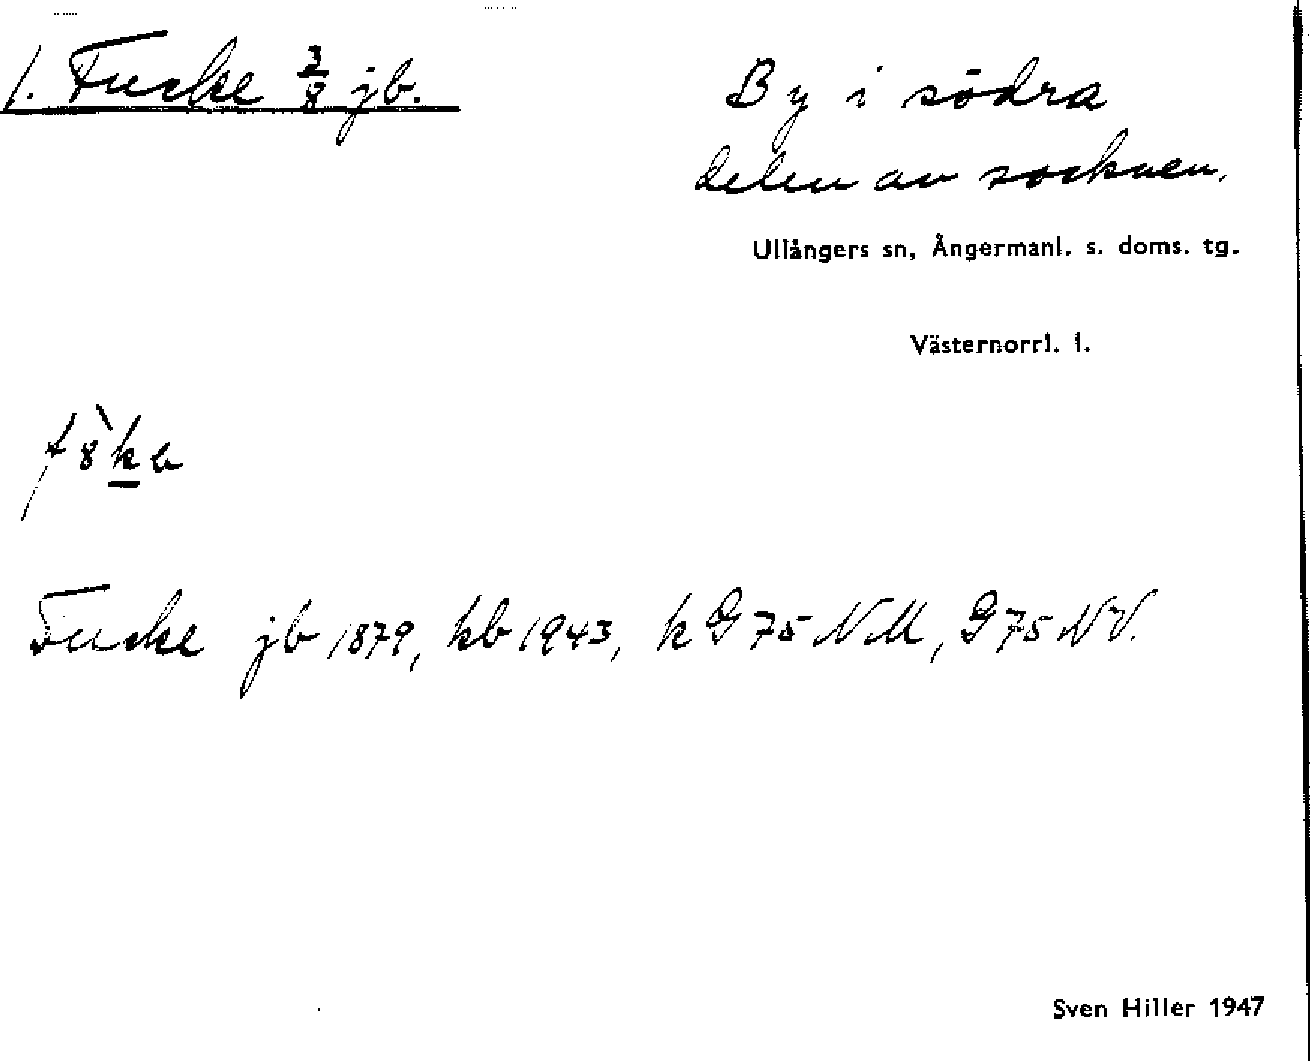 1. Fucke 3/8 jb.
By i södra
delen av socknen.
Ullångers sn, Ångermanl. s. doms. tg.
Västernorrl. l.
Fucke jb 1879, kb 1943, k G 75 NM, G 75 NV.
Sven Hiller 1947